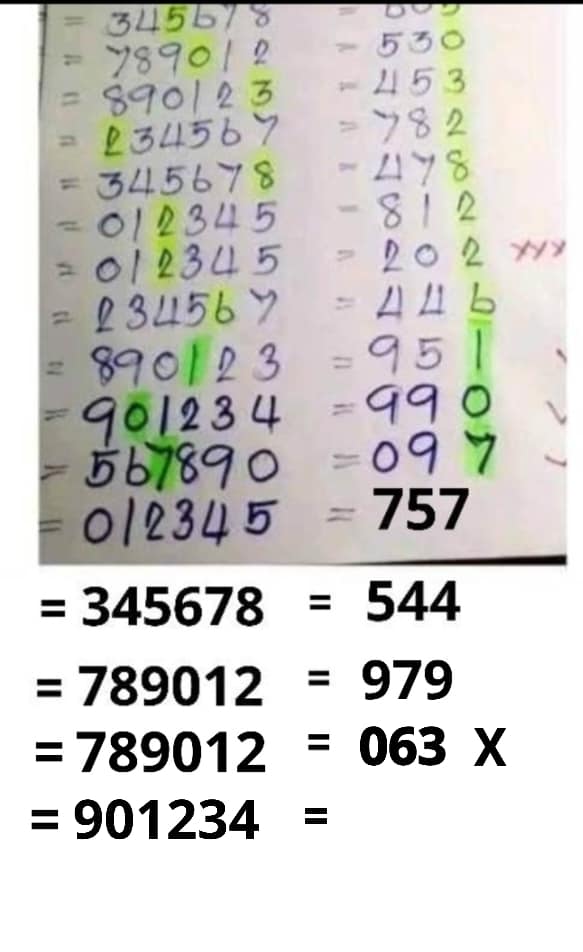 = 345678
= 789012 = 530
= 890123 = 453
= 234567 = 782
= 345678 = 478
= 012345 = 812
= 012345 = 202 xxx
= 234567 = 446
= 890123 = 951
= 901234 = 990
= 567890 = 097
= 012345 = 757
= 345678 = 544
= 789012 = 979
= 789012 = 063 X
= 901234 =